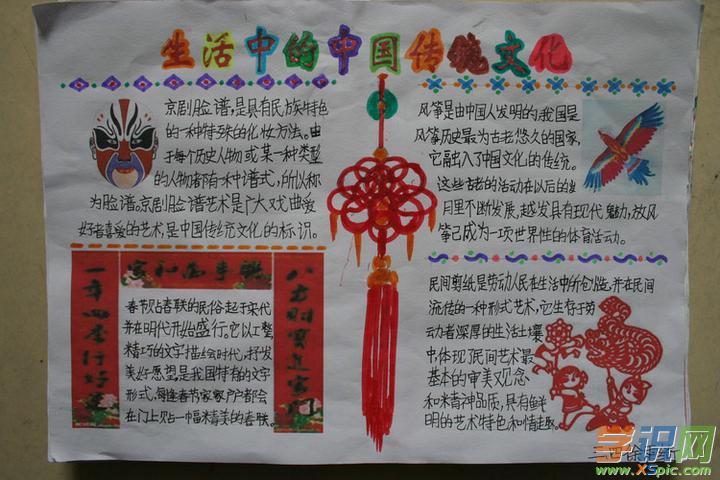 生活中的中国传统文化
京剧脸谱,是具有民族特色
的一种特殊的化妆方法。由
于每个历史人物或某一种类型
的人物都有一种谱式,所以称
为脸谱。京剧脸谱艺术是广大戏曲爱
好者喜爱的艺术是中国传统文化的标识。
风筝是由中国人发明的,我国是
风筝历史最为古老悠久的国家,
它融入了中国文化的传统。
这些古老的活动在以后的岁
月里不断发展,越发具有现代魅力,放风
筝已成为一项世界性的体育活动。
家和万事兴
一年四季行好运
八方财宝进家门
春节贴春联的民俗起于宋代
并在明代开始盛行。它以工整,
精巧的文字描绘时代,抒发
美好愿望,是我国特有的文字
形式,每逢春节家家户户都会
在门上贴一幅精美的春联。
民间剪纸是劳动人民在生活中所创造,并在民间
流传的一种形式艺术,它生存于劳
动者深厚的生活土壤
中体现了民间艺术最
基本的审美观念
和精神品质,具有鲜
明的艺术特色和情趣。
学识网
www.XSpic.com